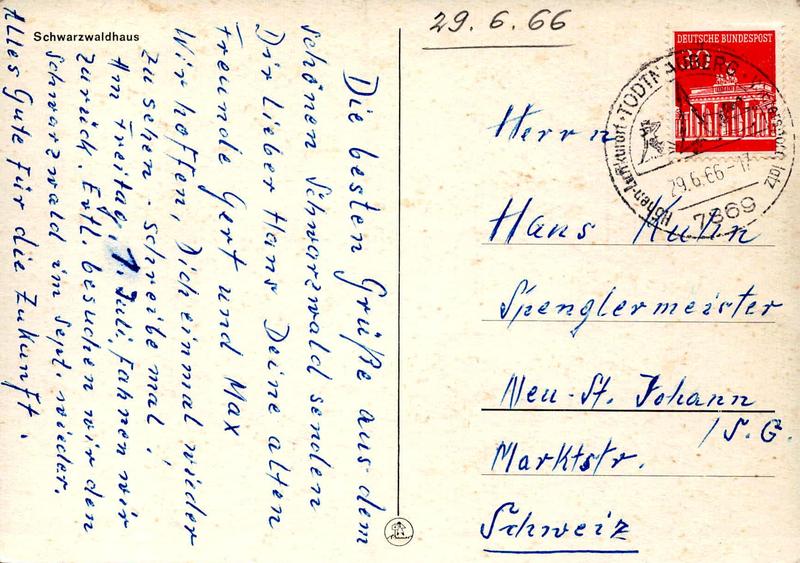 Schwarzwaldhaus
29.6.66
DEUTSCHE BUNDESPOST
TODTNAUBERG
Höhen-Luftkurort
29.6.66-17
7869
Die besten Grüße aus dem
schönen Schwarzwald senden
Dir lieber Hans Deine alten
Freunde Gert und Max
Wir hoffen, Dich einmal wieder
zu sehen. Schreibe mal!
Am Freitag, 1. Juli, fahren wir
zurück. Evtl. besuchen wir den
Schwarzwald im Sept. wieder.
Alles Gute für die Zukunft.
Herrn
Hans Kuhn
Spenglermeister
Neu-St. Johann
/S.G.
Marktstr.
Schweiz